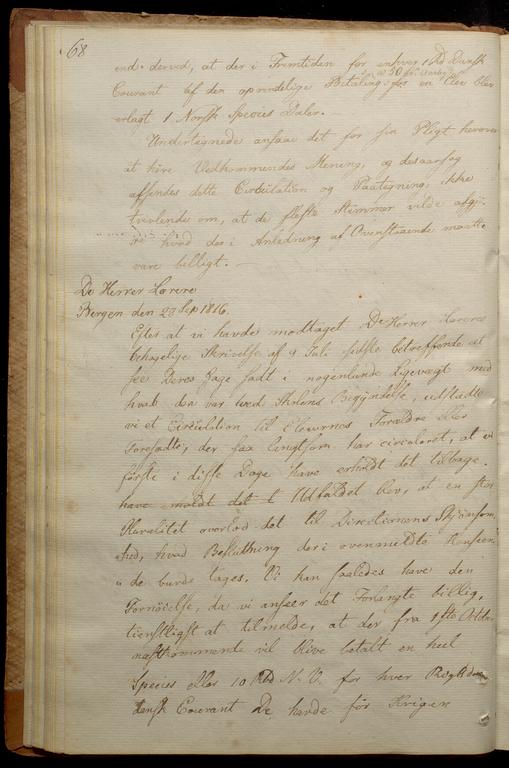 68
end derved, at der i Fremtiden for enhver 1 Rd Dansk
Courant af den oprindelige Betaling for en Elev blev
erlagt 1 Norsk Species Daler. —
Undertegnede ansaae det for sin Pligt herover
at høre Vedkommendes Mening, og desaarsag
afsendes dette Circulation og Paategning, ikke
tvivlende om, at de fleste Stemmer vilde afgjø-
re hvad der i Anledning af Ovenstaaende maatte
være billigt. —
De Herrer Lærere
Bergen den 23 Sep 1816.
Efter at vi havde modtaget De Herrer Læreres
behagelige Skrivelse af 9 Juli sidste betreffende at
see Deres Gage sadt i nogenlunde Ligevægt med
hvad den var ved Skolens Begyndelse, udstædte
vi et Circulation til Elevernes Forældre eller
Foresadte, der saa langsom har circuleret, at vi
første i disse Dage have erholdt det tilbage.
have det t Udfaldet blev, at en stor
Pluralitet overlod det til Directionens Skjønsom-
hed, hvad Beslutning der i ovenmeldte Henseen-
de burde tages. Vi kan saaledes have den
Fornøielse, da vi ansee det Forlangte billig,
tienstligst at tilmelde, at der fra 1ste Octbr
næstkommende vil blive betalt en heel
Species eller 10 Rbd N. V. for hver Rigsdaler
dansk Courant De havde før Krigen